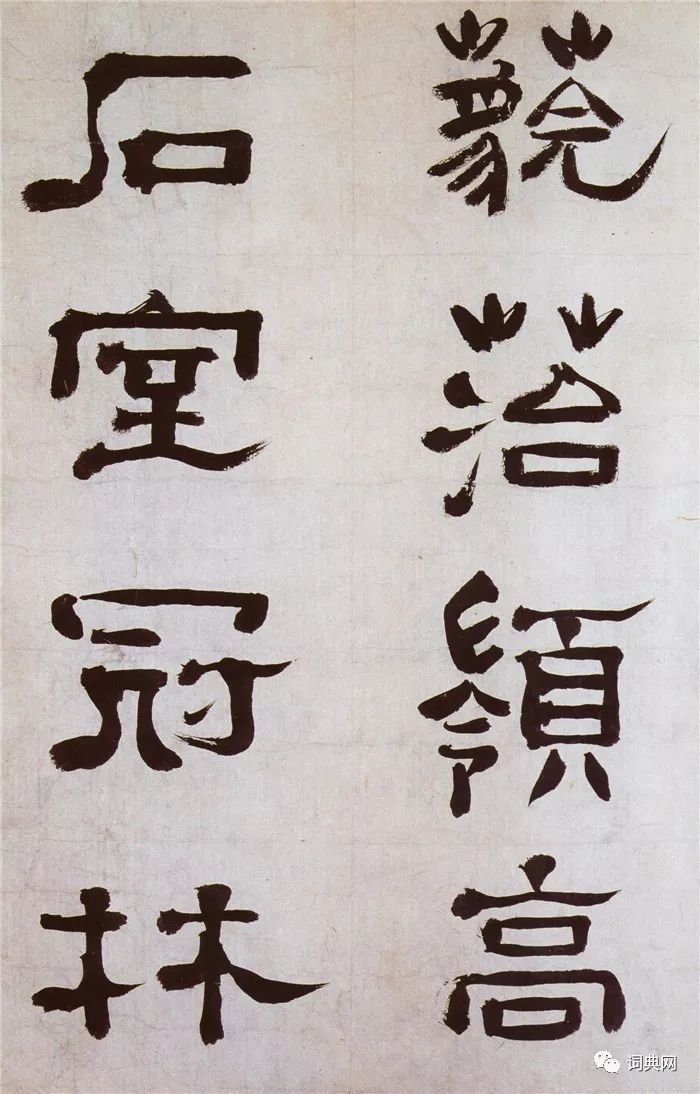 藐菭嶺高
石室冠林
词典网